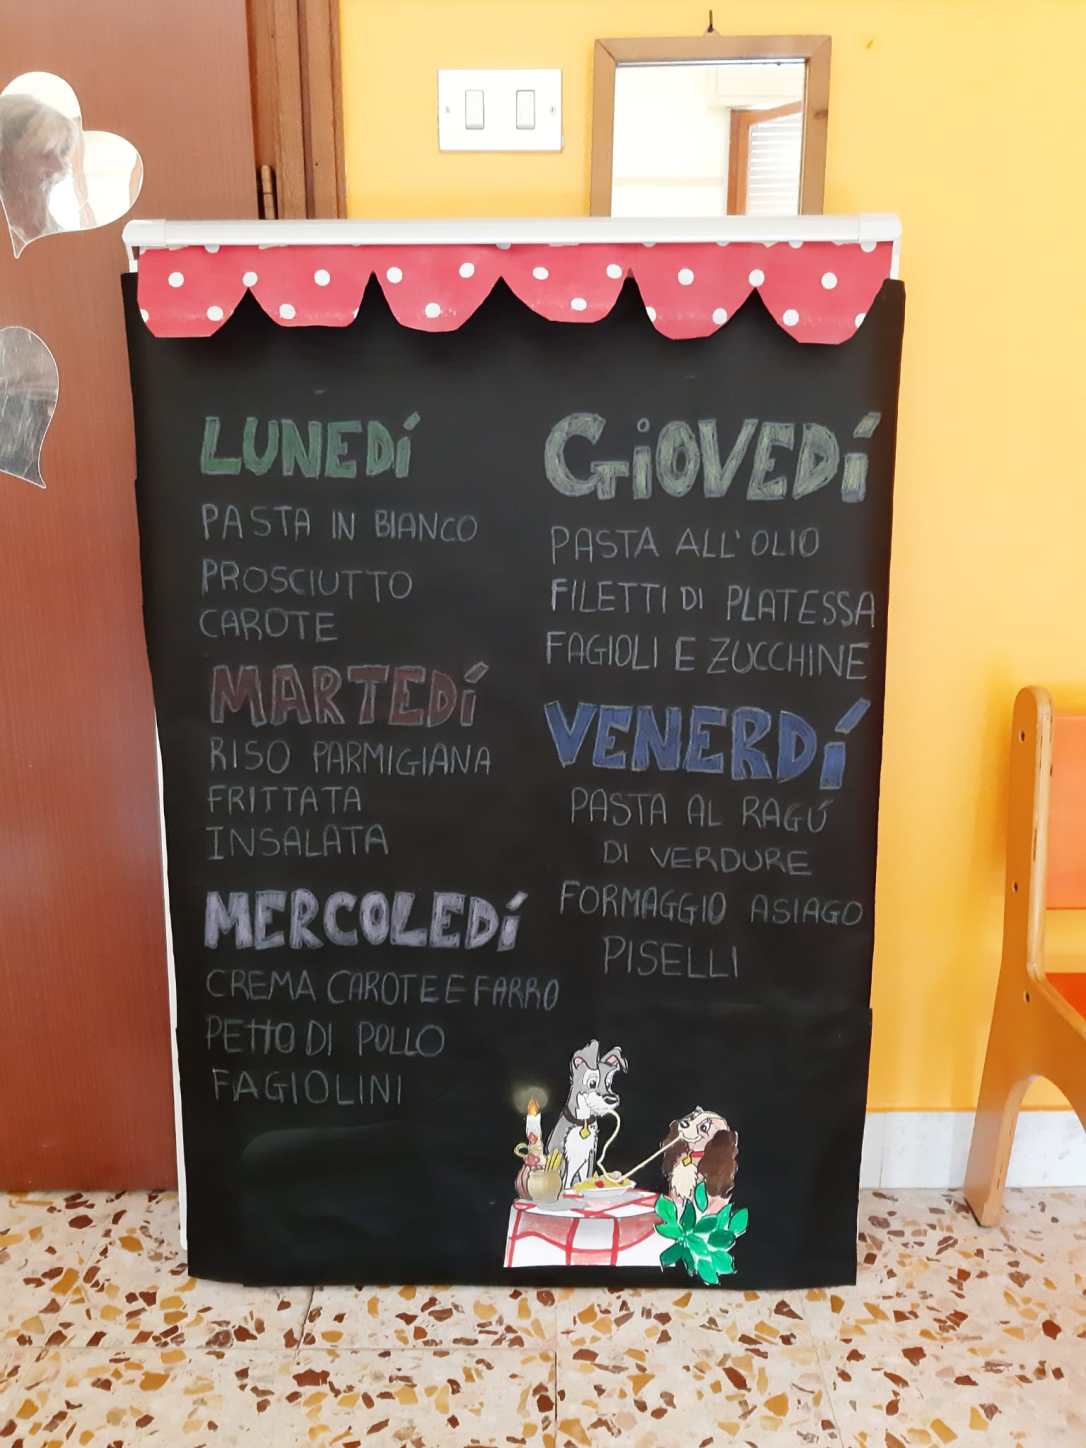 LUNEDÍ
PASTA IN BIANCO
PROSCIUTTO
CAROTE
MARTEDÍ
RISO PARMIGIANA
FRITTATA
INSALATA
MERCOLEDÍ
CREMA CAROTE E FARRO
PETTO DI POLLO
FAGIOLINI
GIOVEDÍ
PASTA ALL'OLIO
FILETTI DI PLATESSA
FAGIOLI E ZUCCHINE
VENERDÍ
PASTA AL RAGÚ
DI VERDURE
FORMAGGIO ASIAGO
PISELLI